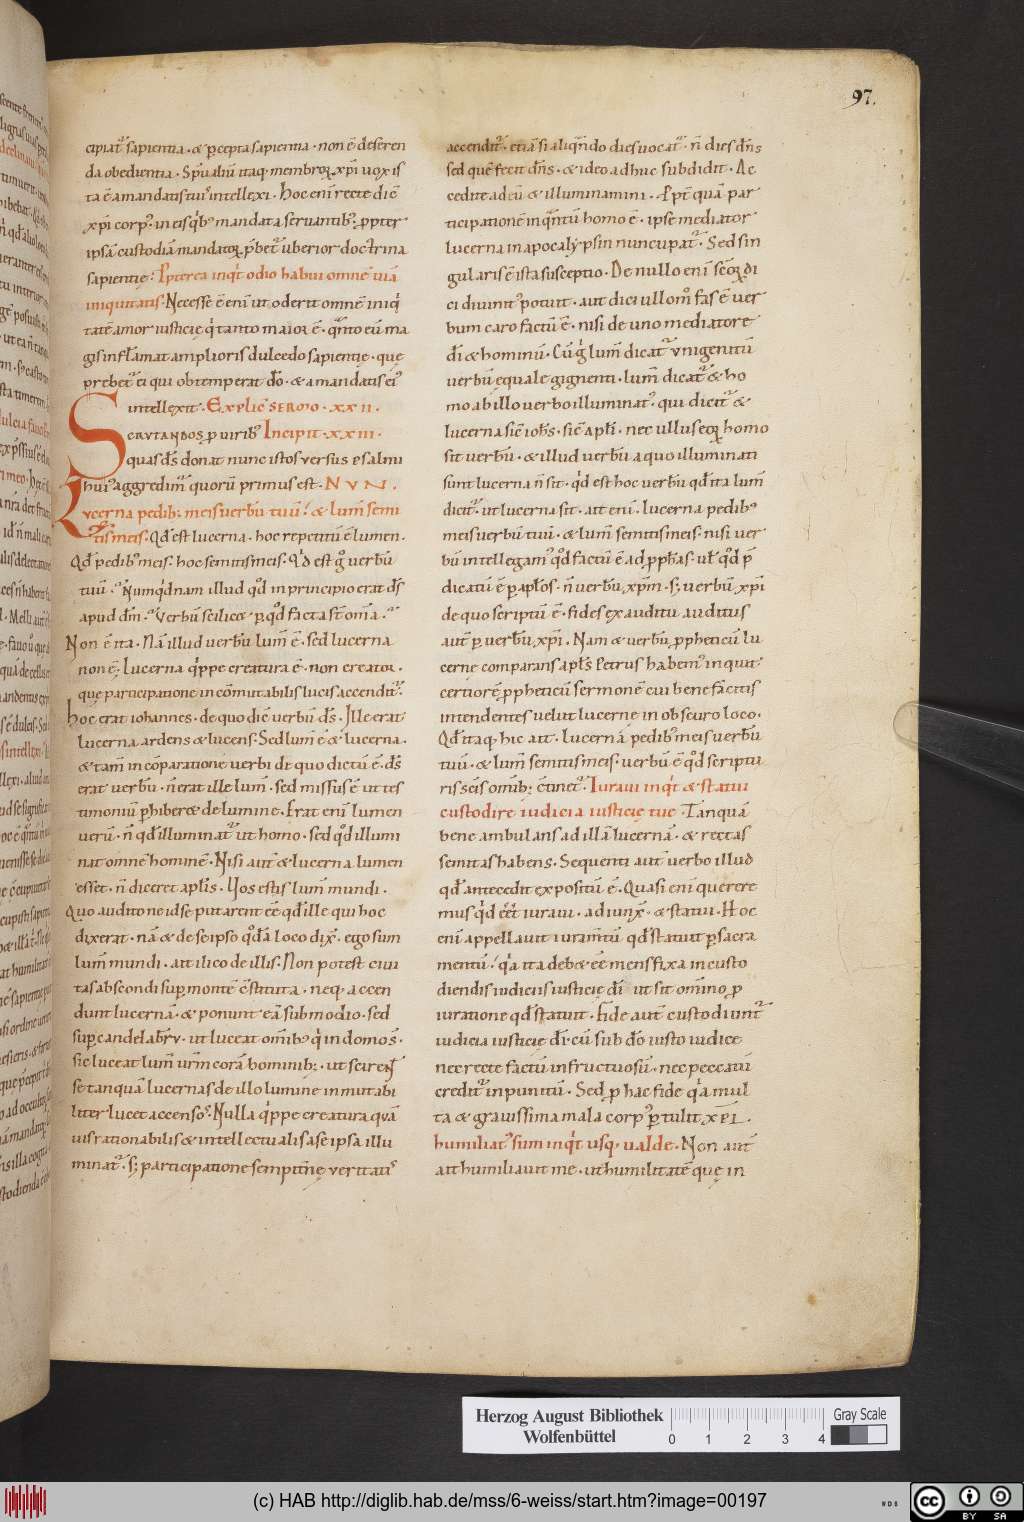 97.
cipiat᷑ sapientia · & ꝑcepta sapientia · non ē deseren
da obedientia · Spūaliū itaq; membroꝝ xp̄i uox is
ta ē amandatis tuis intellexi · Hoc eni recte diē
xp̄i corp᷒ · in eis q̇b᷒ mandata seruantib᷒ · ꝓpter
ipsā custodiā mandatoꝝ p̄bet᷑ uberior doctrina
sapientię : Ppterea inqt odio habui omnē uiā
iniquitatis · Necesse ē eni ut oderit omnē iniq̇
tatē amor iusticię q̇ tanto maior ē · qͣnto eū ma
gis inflāmat amplioris dulcedo sapientię · quę
prebet᷑ ei qui obtemperat dō · & amandatis ei᷒
intellexit · Explic sermo · xxii ·
Scrutandos ꝓ uirib᷒ Incipit · xxiii ·
quas dś donat nunc istos versus psalmi
hui᷒ aggredim᷑ quorū primus est · NVN ·
Lucerna pedib; meis uerbū tuū : & lum̄ semi
tis meis · Qd̄ est lucerna · hoc repetitū ē lumen ·
Qd̄ pedib᷒ meis · hoc semitis meis · Qd est gͦ uerbū
tuū · Nūmqdnam illud qd̄ in principio erat ds̄
apud dm̄ · Verbū scilic& ꝑ qd̄ facta st̄ om̄a ·
Non ē ita · Nā illud uerbū lum̄ ē · sed lucerna
non ē · lucerna q̇ppe creatura ē · non creator ·
quę participatione incōmutabilis lucis accendit᷑ ·
hoc erat iohannes · de quo diē uerbū ds̄ · Ille erat
lucerna ardens & lucens · Sed lum̄ ē & lucerna ·
& tam̄ in cōparatione uerbi de quo dictū ē · ds̄
erat uerbū · n̄ erat ille lum̄ · sed missus ē ut tes
timoniū ꝑhiber& de lumine · Erat eni lumen
uerū · n̄ qd̄ illuminat᷑ ut homo · sed qd̄ illumi
nat omnē hominē · Nisi aut̄ & lucerna lumen
esset · n̄ diceret apłs · Uos estis lum̄ mundi ·
Quo audito ne id se putarent eē qd̄ ille qui hoc
dixerat · nā & de se ipso qͦdā loco dix̄ · ego sum
lum̄ mundi · ait ilico de illis · Non potest ciui
tas abscondi sup̄ montē cstituta · neq; accen
dunt lucernā · & ponunt eā sub modio · sed
sup̄ candelabrū · ut luceat omib᷒ q̇ in domo s̄ ·
sic luceat lum̄ urm̄ corā hominib; · ut scirent
se tanquā lucernas de illo lumine inmutabi
liter lucet accensos · Nulla q̇ppe creatura quā
uis rationabilis & intellectualis a se ipsa illu
minat᷑ · s; participatione sempitnę ueritatis
accendit᷑ · etiā si aliqn̄do dies uocat᷑ · n̄ dies dn̄s
sed quē fecit dn̄s · & ideo adhuc subdidit · Ac
cedite ad eū & illuminamini · Ppt̄ quā par
ticipationē inqͣntū homo ē · ipse mediator
lucerna in apocalypsin nuncupat᷑ · Sed sin
gularis ē ista susceptio · De nullo eni sc̄oꝝ di
ci diuinit᷒ potuit · aut dici ullom̊ fas ē ver
bum caro factū ē · nisi de uno mediatore
dī & hominū · Cū g̊ lum̄ dicat᷑ vnigenitū
uerbū ęquale gignenti · lum̄ dicat᷑ & ho
mo ab illo uerbo illuminat᷒ · qui dicit᷑ &
lucerna sic ioh̄s · sic apłi · nec ullus eoꝝ homo
sit uerbū · & illud uerbū a quo illuminati
sunt lucerna n̄ sit · qd est hoc uerbū qd̄ ita lum̄
dicit᷑ · ut lucerna sit · ait eni · lucerna pedib᷒
meis uerbū tuū · & lum̄ semitis meis · nisi uer
bū intellegam᷒ qd̄ factū ē ad ꝓphas · uł qd̄ p̄
dicatū ē ꝑ apłos · n̄ uerbū xpm̄ · s; uerbū xp̄i
de quo scriptū ē · fides ex auditu · auditus
aut̄ ꝑ uerbū xp̄i · Nam & uerbū ꝓpheticū lu
cerne comparans apłs Petrus habem᷒ inquit·
certiorē ꝓpheticū sermonē cui bene facitis
intendentes uelut lucerne in obscuro loco ·
Qd̄ itaq; hic ait · lucerna pedib᷒ meis uerbū
tuū · & lum̄ semitis meis · uerbū ē qd̄ scriptu
ris scis omib; ctinet᷑ · Iuraui inqt & statui
custodire iudicia iusticię tuę · Tanquā
bene ambulans ad illā lucernā · & rectas
semitas habens · Sequenti aut̄ uerbo illud
qd̄ antecedit expositū ē · Quasi eni querere
mus qd ēēt iuraui · adiunx̄ · & statui · Hoc
eni appellauit iuram̄tū qd̄ statuit ꝑ sacra
mentū · qa ita deb& eē mens fixa in custo
diendis iudiciis iusticię dī · ut sit omino ꝓ
iuratione qd̄ statuit · Fide aut̄ custodiunt᷑
iudicia iusticię dī · cū sub dō iusto iudice
nec recte factū infructuosū · nec peccatū
credit᷑ inpunitū · Sed ꝓ hac fide qa mul
ta & grauissima mala corp᷒ ꝑtulit xp̄i ·
humiliat᷒ sum inqt usq; ualde · Non aut̄
ait humiliaui me · ut humilitatē quę in
Herzog August Bibliothek
Wolfenbüttel
0 1 2 3 4
Gray Scale
(c) HAB http://diglib.hab.de/mss/6-weiss/start.htm?image=00197
WDB
cc BY SA